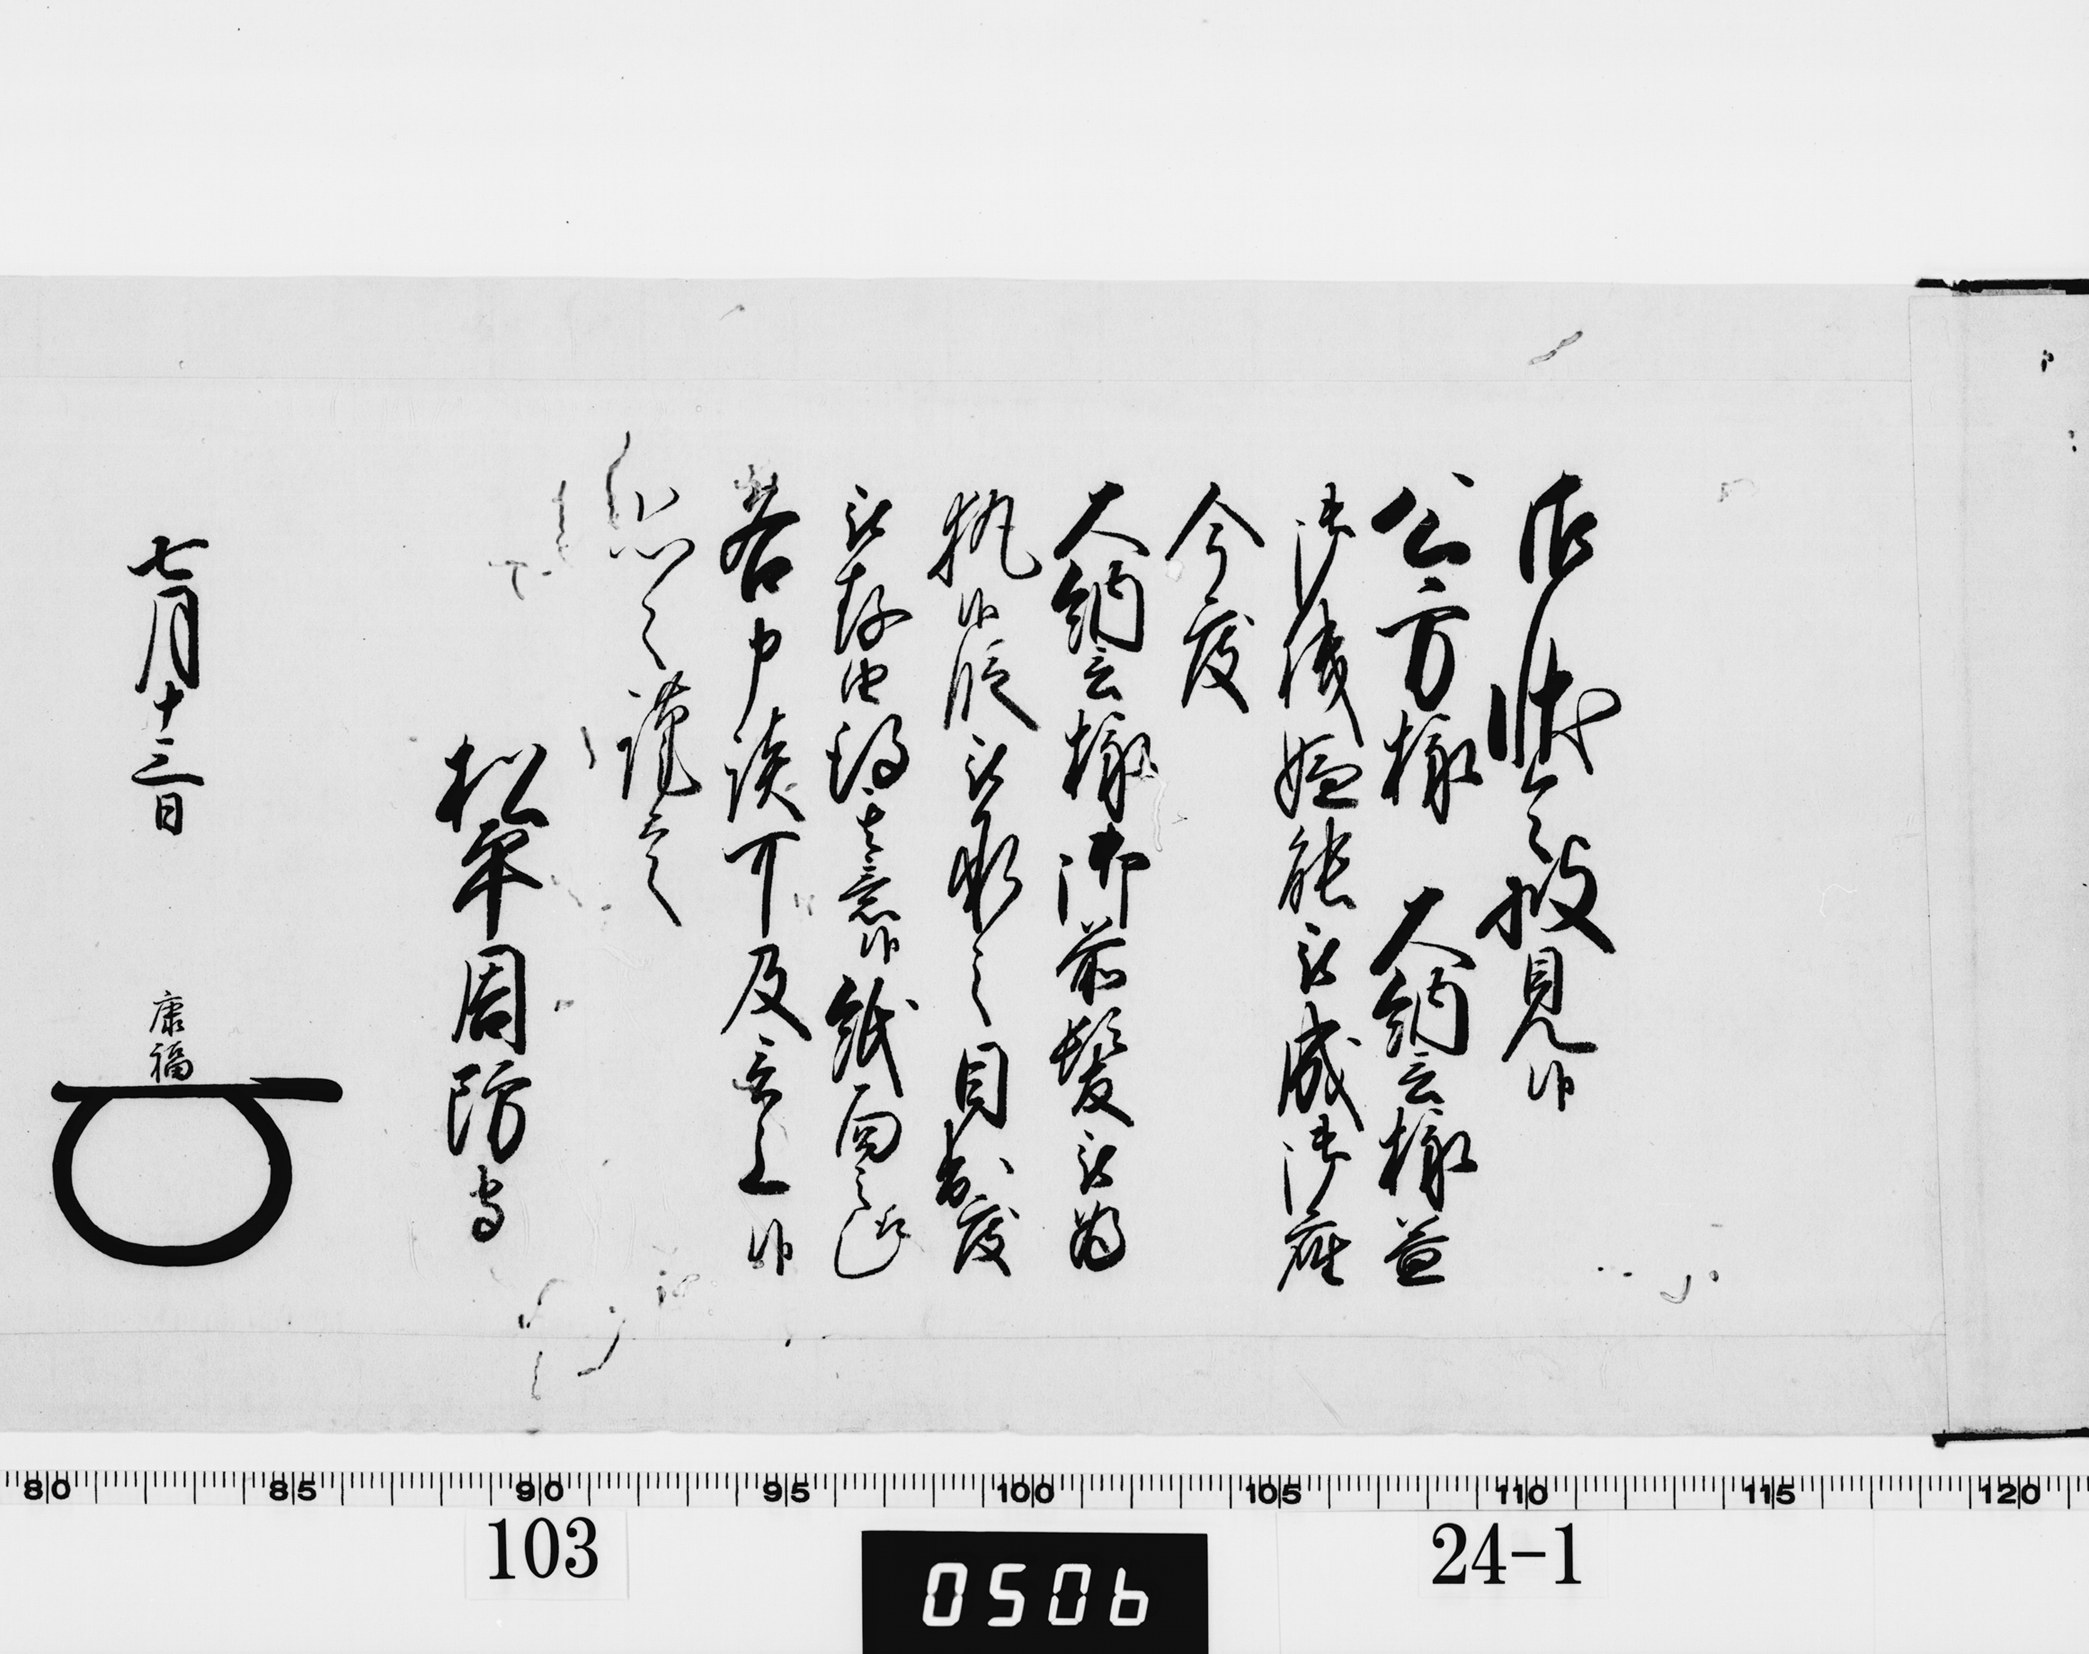 御状令披見候
公方様 大納言様益
御機嫌能被成御座
今度
大納言様御前髪被為
執候段被承之目出度
被存由得其意候紙面之趣
各申談可及言上候
恐々謹言
松平周防守
七月十三日 康福
80 85 90 95 100 105 110 115 120
103
0506
24-1